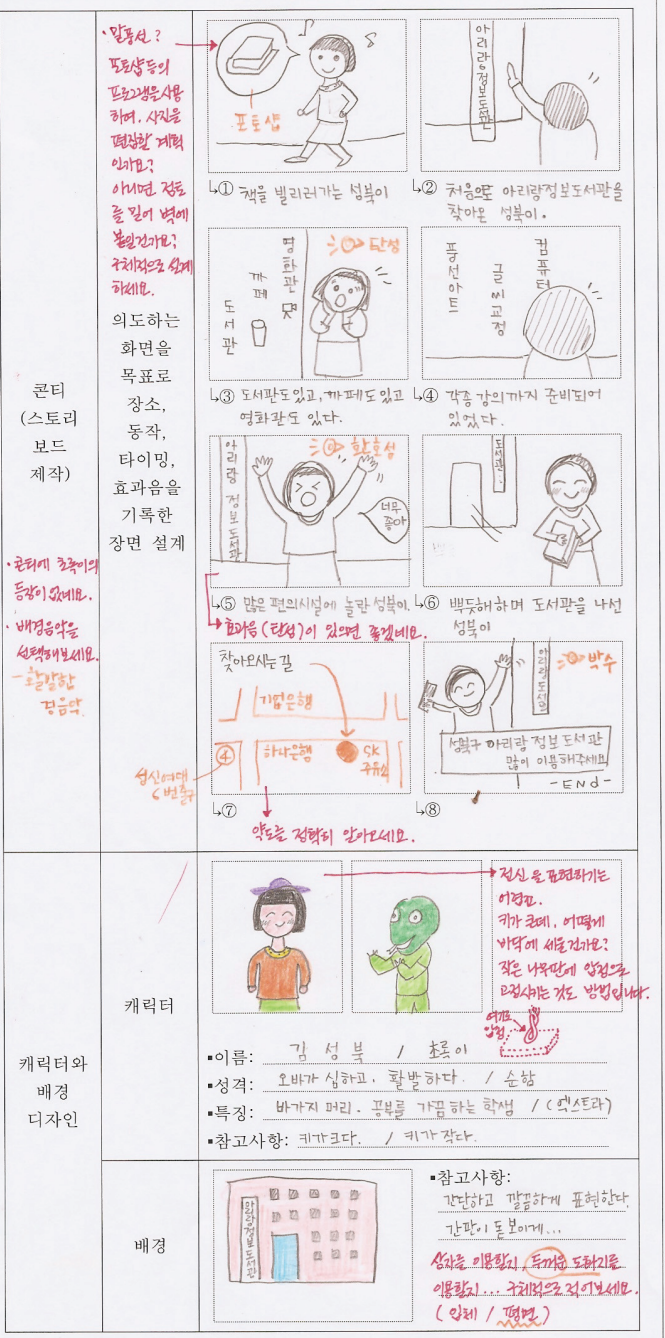 콘티
(스토리
보드
제작)
• 콘티에 초록이의
등장이 없네요.
• 배경음악을
선택해보세요.
- 활발한
경음악
• 말풍선?
포토샵등의
프로그램을 사용
하여, 사진을
편집할 계획
인가요?
아니면 점토
를 밀어 벽에
붙일건가요?
구체적으로 설계
하세요.
의도하는
화면을
목표로
장소,
동작,
타이밍,
효과음을
기록한
장면 설계
포토샵
↳① 책을 빌리러가는 성북이
아리랑정보도서관
↳② 처음으로 아리랑정보도서관을
찾아온 성북이.
영화관
까페
도서관
탄성
↳③ 도서관도있고, 까페도 있고
영화관도 있다.
컴퓨터
글씨교정
풍선아트
↳④ 각종 강의까지 준비되어
있었다.
아리랑 정보도서관
환호성
너무
좋아
↳⑤ 많은 편의시설에 놀란 성북이.
효과음(탄성)이 있으면 좋겠네요.
도서관
↳⑥ 뿌듯해하며 도서관을 나선
성북이
찾아오시는길
기업은행
④
하나은행
SK
주유소
성신여대
6번출구
↳⑦
약도를 정확히 알아보세요.
아리랑도서관
박수
성북구 아리랑 정보 도서관
많이 이용해주세요
- END -
↳⑧
캐릭터와
배경
디자인
캐릭터
전신을 표현하기는
어렵고.
키가 큰데, 어떻게
바닥에 세울건가요?
작은 나무판에 압정으로
고정시키는 것도 방법입니다.
여기로
압정
▪이름: 김 성 북 / 초록이
▪성격: 오바가 심하고, 활발하다. / 순함
▪특징: 바가지 머리. 공부를 가끔 하는 학생 / (엑스트라)
▪참고사항: 키가 크다. / 키가 작다.
배경
아리랑정보도서관
▪참고사항:
간단하고 깔끔하게 표현한다.
간판이 돋보이게...
상자를 이용할지, 두꺼운 도화지를
이용할지... 구체적으로 적어보세요.
(입체 / 평면)